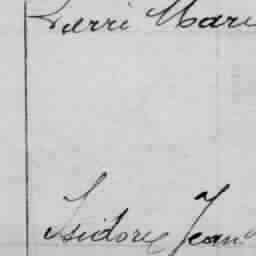 Pierre Marie
Isidore Jean